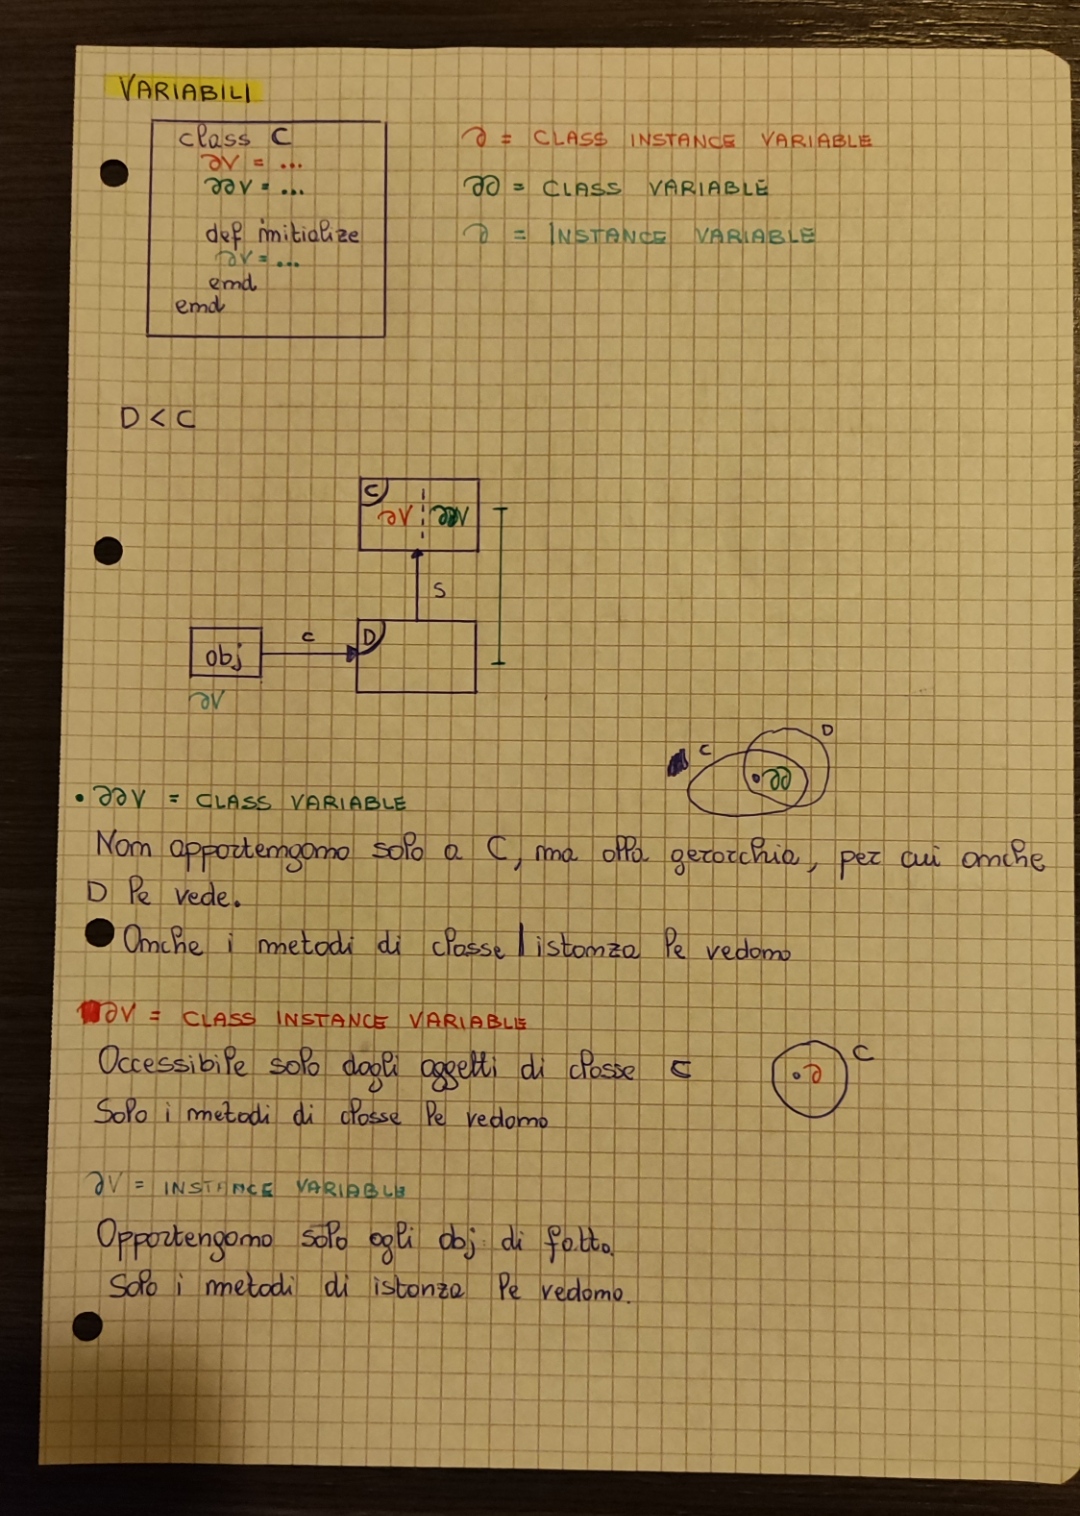 VARIABILI
class C
@V = ...
@@V = ...
def initialize
@V = ...
end
end
@ = CLASS INSTANCE VARIABLE
@@ = CLASS VARIABLE
@ = INSTANCE VARIABLE
D < C
C
@V @@V
S
obj
c
D
@V
C
D
@@
• @@V = CLASS VARIABLE
Non appartengono solo a C, ma alla gerarchia, per cui anche
D le vede.
Anche i metodi di classe / istanza le vedono
@V = CLASS INSTANCE VARIABLE
Accessibile solo dagli oggetti di classe C
Solo i metodi di classe le vedono
C
@
@V = INSTANCE VARIABLE
Appartengono solo agli obj di fatto.
Solo i metodi di istanza le vedono.